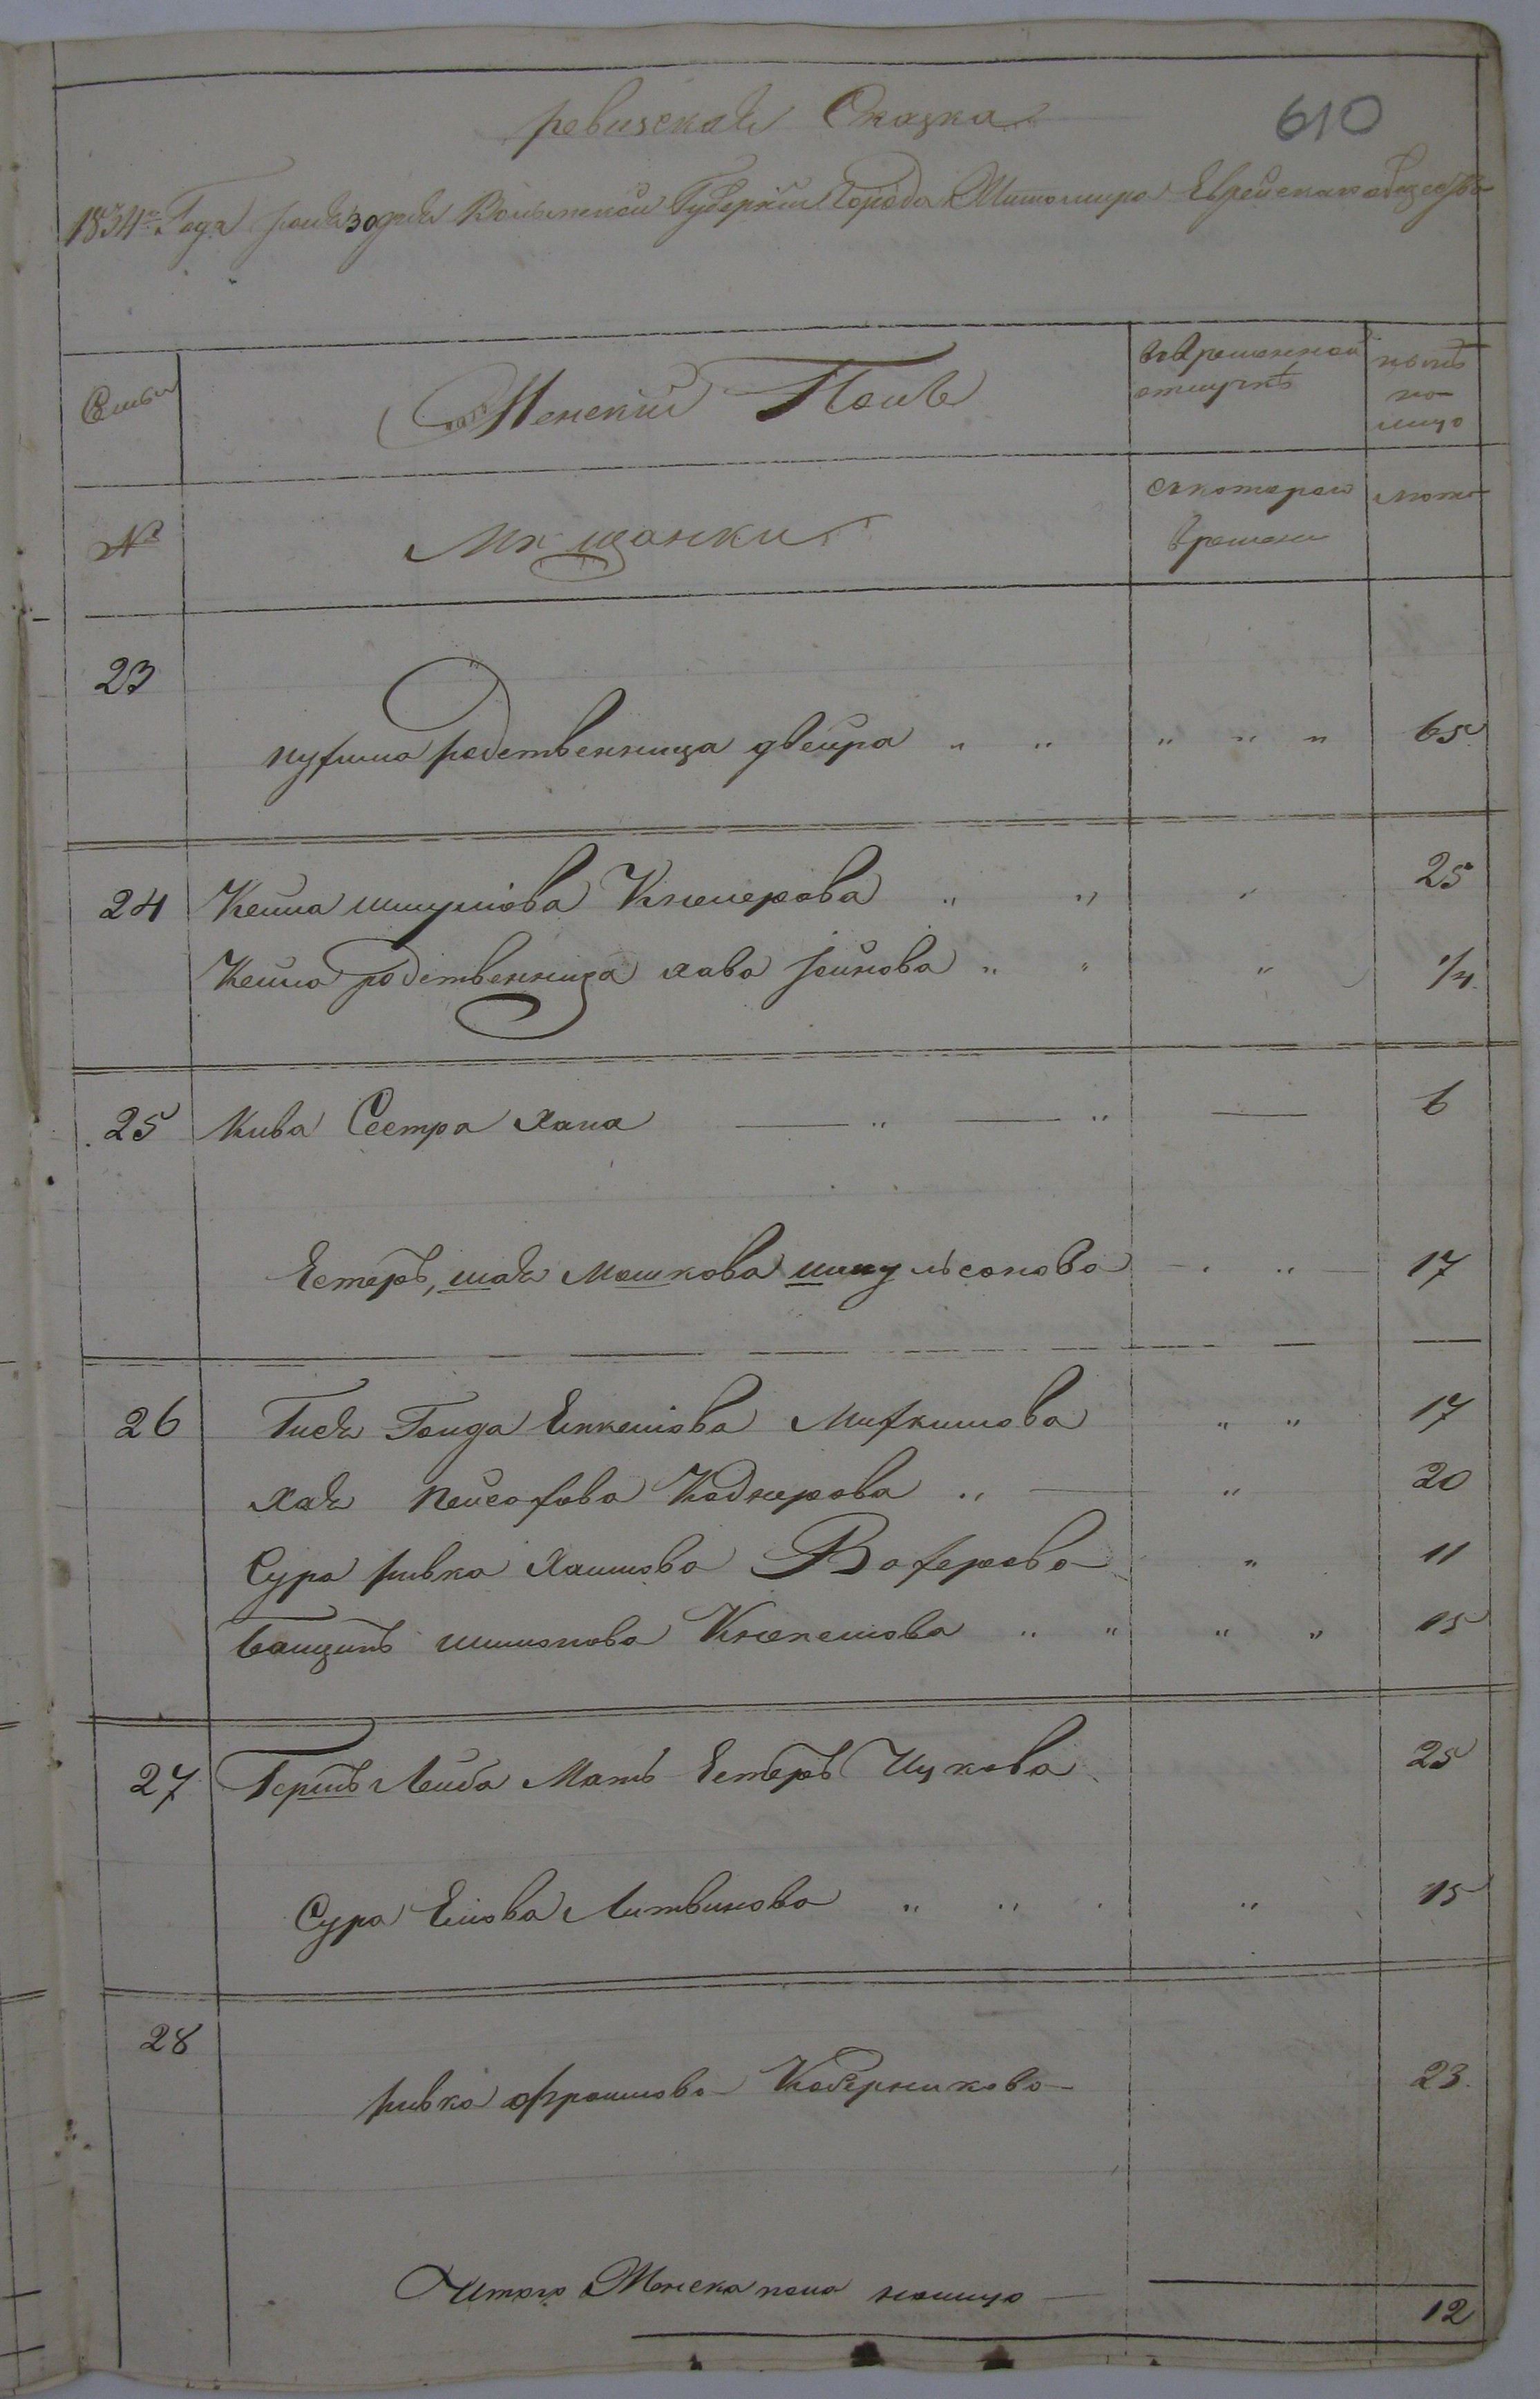 ревизская Сказка
610
1834го Года мая 30 дня Волынской Губернии Города Житомира Еврейскаго общества
Семьи
Женский Полъ
Въ временной отлучкѣ
нынѣ на лицо
№
Мѣщанки
Съ котораго времени
лѣта
23
родственница двейра " " " " " 65
24 Кейла шмулiова Клейнерова " " " 25
Кейла родственница хава Iойнова " " " 1/4
25 Кива Сестра Хана — " — " — 6
Естеръ, шая Мошкова шмульсонова " 17
26 Гися Голда 17
Хая Пейсахова Коднерова " " 20
Сура ривка Хаимова " 11
шимонова " " " " 15
27 Гершъ Лейба Мать Естеръ Ицкова 25
Сура Елiова Литвинова " " " 15
28
ривка фроимова Коберникова 23
Итого Женска пола налицо 12